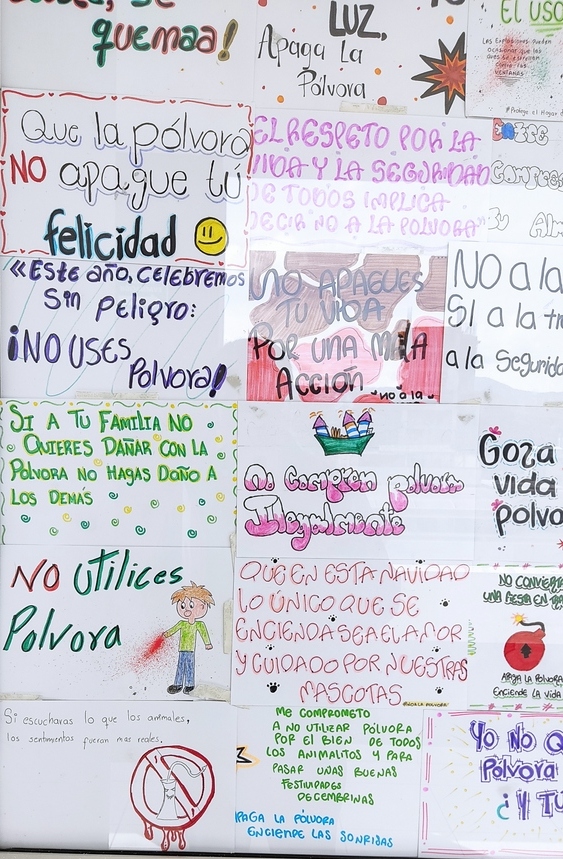 quemaa!
LUZ,
Apaga La
Pólvora
El USO
Las Explosiones Pueden
Ocasionar que las
VENTANAS
Que la pólvora
NO apague tú
felicidad
EL RESPETO POR LA
VIDA Y LA SEGURIDAD
DE TODOS IMPLICA
DECIR NO A LA POLVORA"
"Este año, celebremos
Sin peligro:
¡NO USES
Polvora!
NO APAGUES
TU VIDA
POR UNA MALA
ACCIÓN
"NO a la
NO a la
SI a la
a la Segurida
SI A TU FAMILIA NO
QUIERES DAÑAR CON LA
POLVORA NO HAGAS DAÑO A
LOS DEMÁS
No Compren polvora
Ilegalmente
Goza
vida
polvo
NO Utilices
Polvora
QUE EN ESTA NAVIDAD
LO ÚNICO QUE SE
ENCIENDA SEA EL AMOR
Y CUIDADO POR NUESTRAS
MASCOTAS
NO CONVIERTA
UNA FIESTA EN TRA
APAGA LA POLVORA
Enciende LA VIDA
Si escucharas lo que los animales,
los sentimientos fueran mas reales.
ME COMPROMETO
A NO UTILIZAR PÓLVORA
POR EL BIEN DE TODOS
LOS ANIMALITOS Y PARA
PASAR UNAS BUENAS
FESTIVIDADES
DECEMBRINAS
APAGA LA PÓLVORA
ENCIENDE LAS SONRISAS
Yo No
Pólvora
¿Y TU